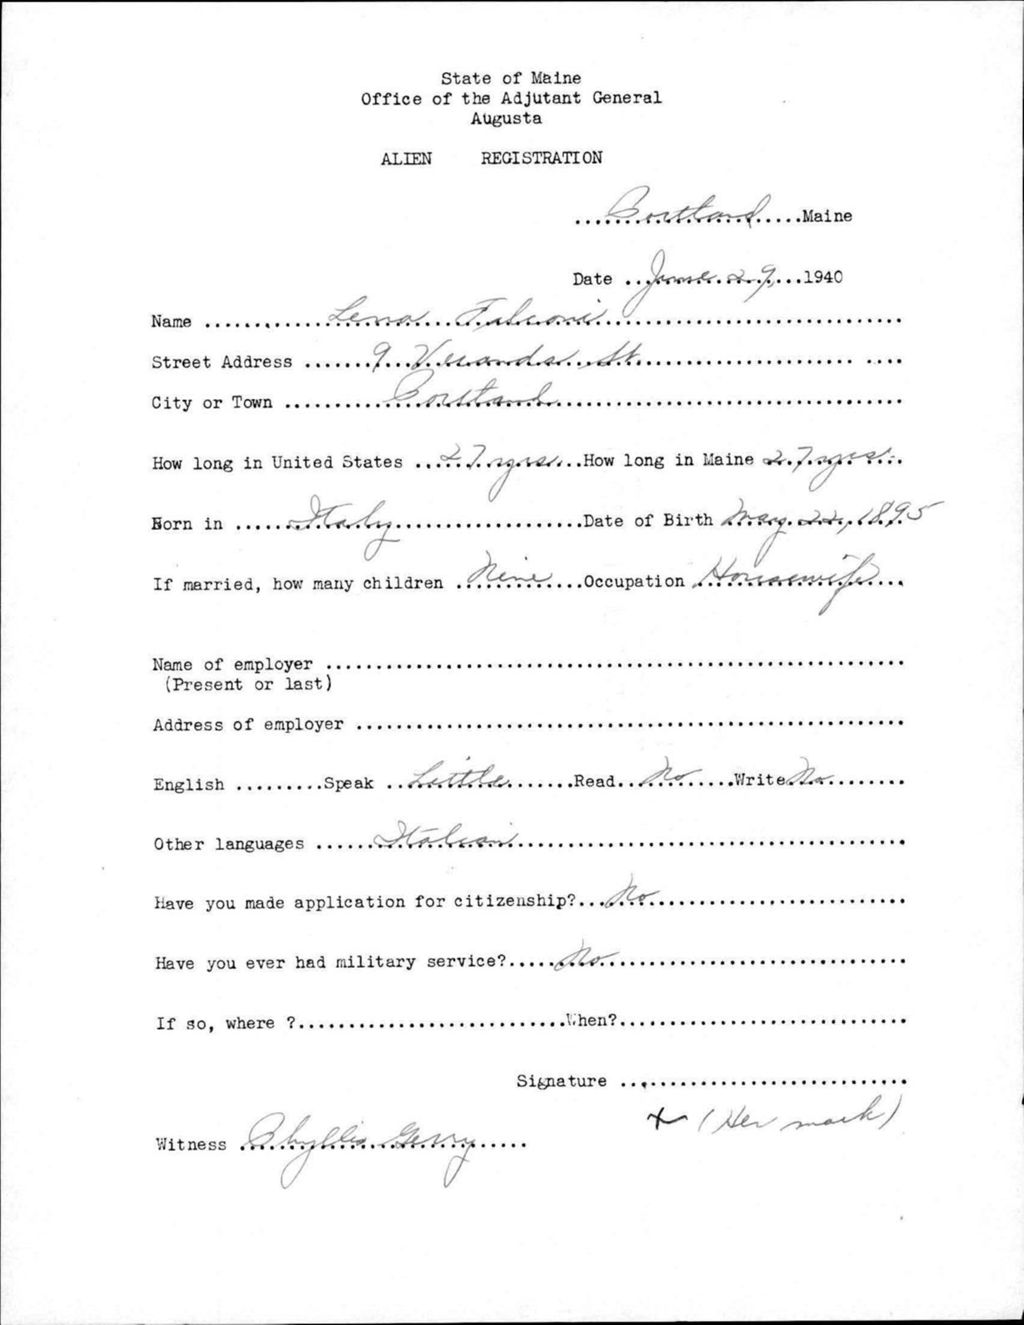 State of Maine
Office of the Adjutant General
Augusta
ALIEN REGISTRATION
...Portland...Maine
Date ...June 29,...1940
Name ...Lena Falconi...
Street Address ...9 Veranda St...
City or Town ...Portland...
How long in United States ...27 yrs...How long in Maine 27 yrs...
Born in ...Italy...Date of Birth May 22, 1895
If married, how many children ...Nine...Occupation ...Housewife...
Name of employer ...
(Present or last)
Address of employer ...
English ...Speak ...Little...Read...No...Write No...
Other languages ...Italian...
Have you made application for citizenship?...No...
Have you ever had military service?...No...
If so, where ?...When?...
Signature ...
x (Her mark)
Witness Phyllis Gerry...